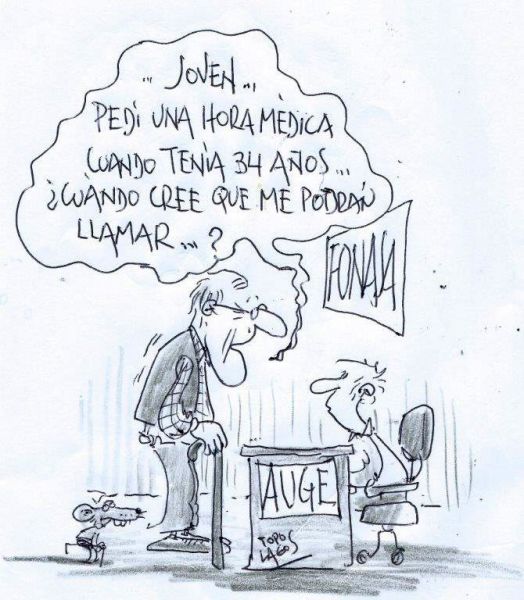 ... JOVEN...
PEDÍ UNA HORA MÈDICA
CUANDO TENÍA 34 AÑOS...
¿CUÀNDO CREE QUE ME PODRÁN
LLAMAR...?
FONASA
AUGE
TOPO
LAGOS